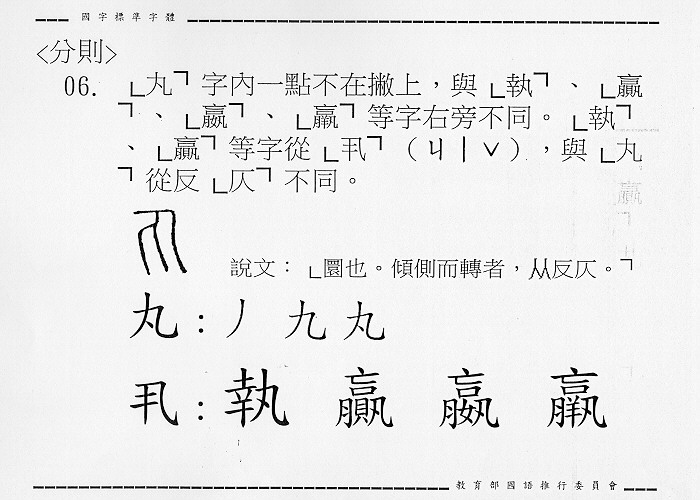 國字標準字體
<分則>
06. 「丸」字內一點不在撇上,與「執」、「贏
」、「嬴」、「羸」等字右旁不同。「執」
、「贏」等字從「丮」(ㄐㄧˇ),與「丸
」從反「仄」不同。
說文:「圜也。傾側而轉者,从反仄。」
丸:丿 九 丸
丮:執 贏 嬴 羸
教育部國語推行委員會